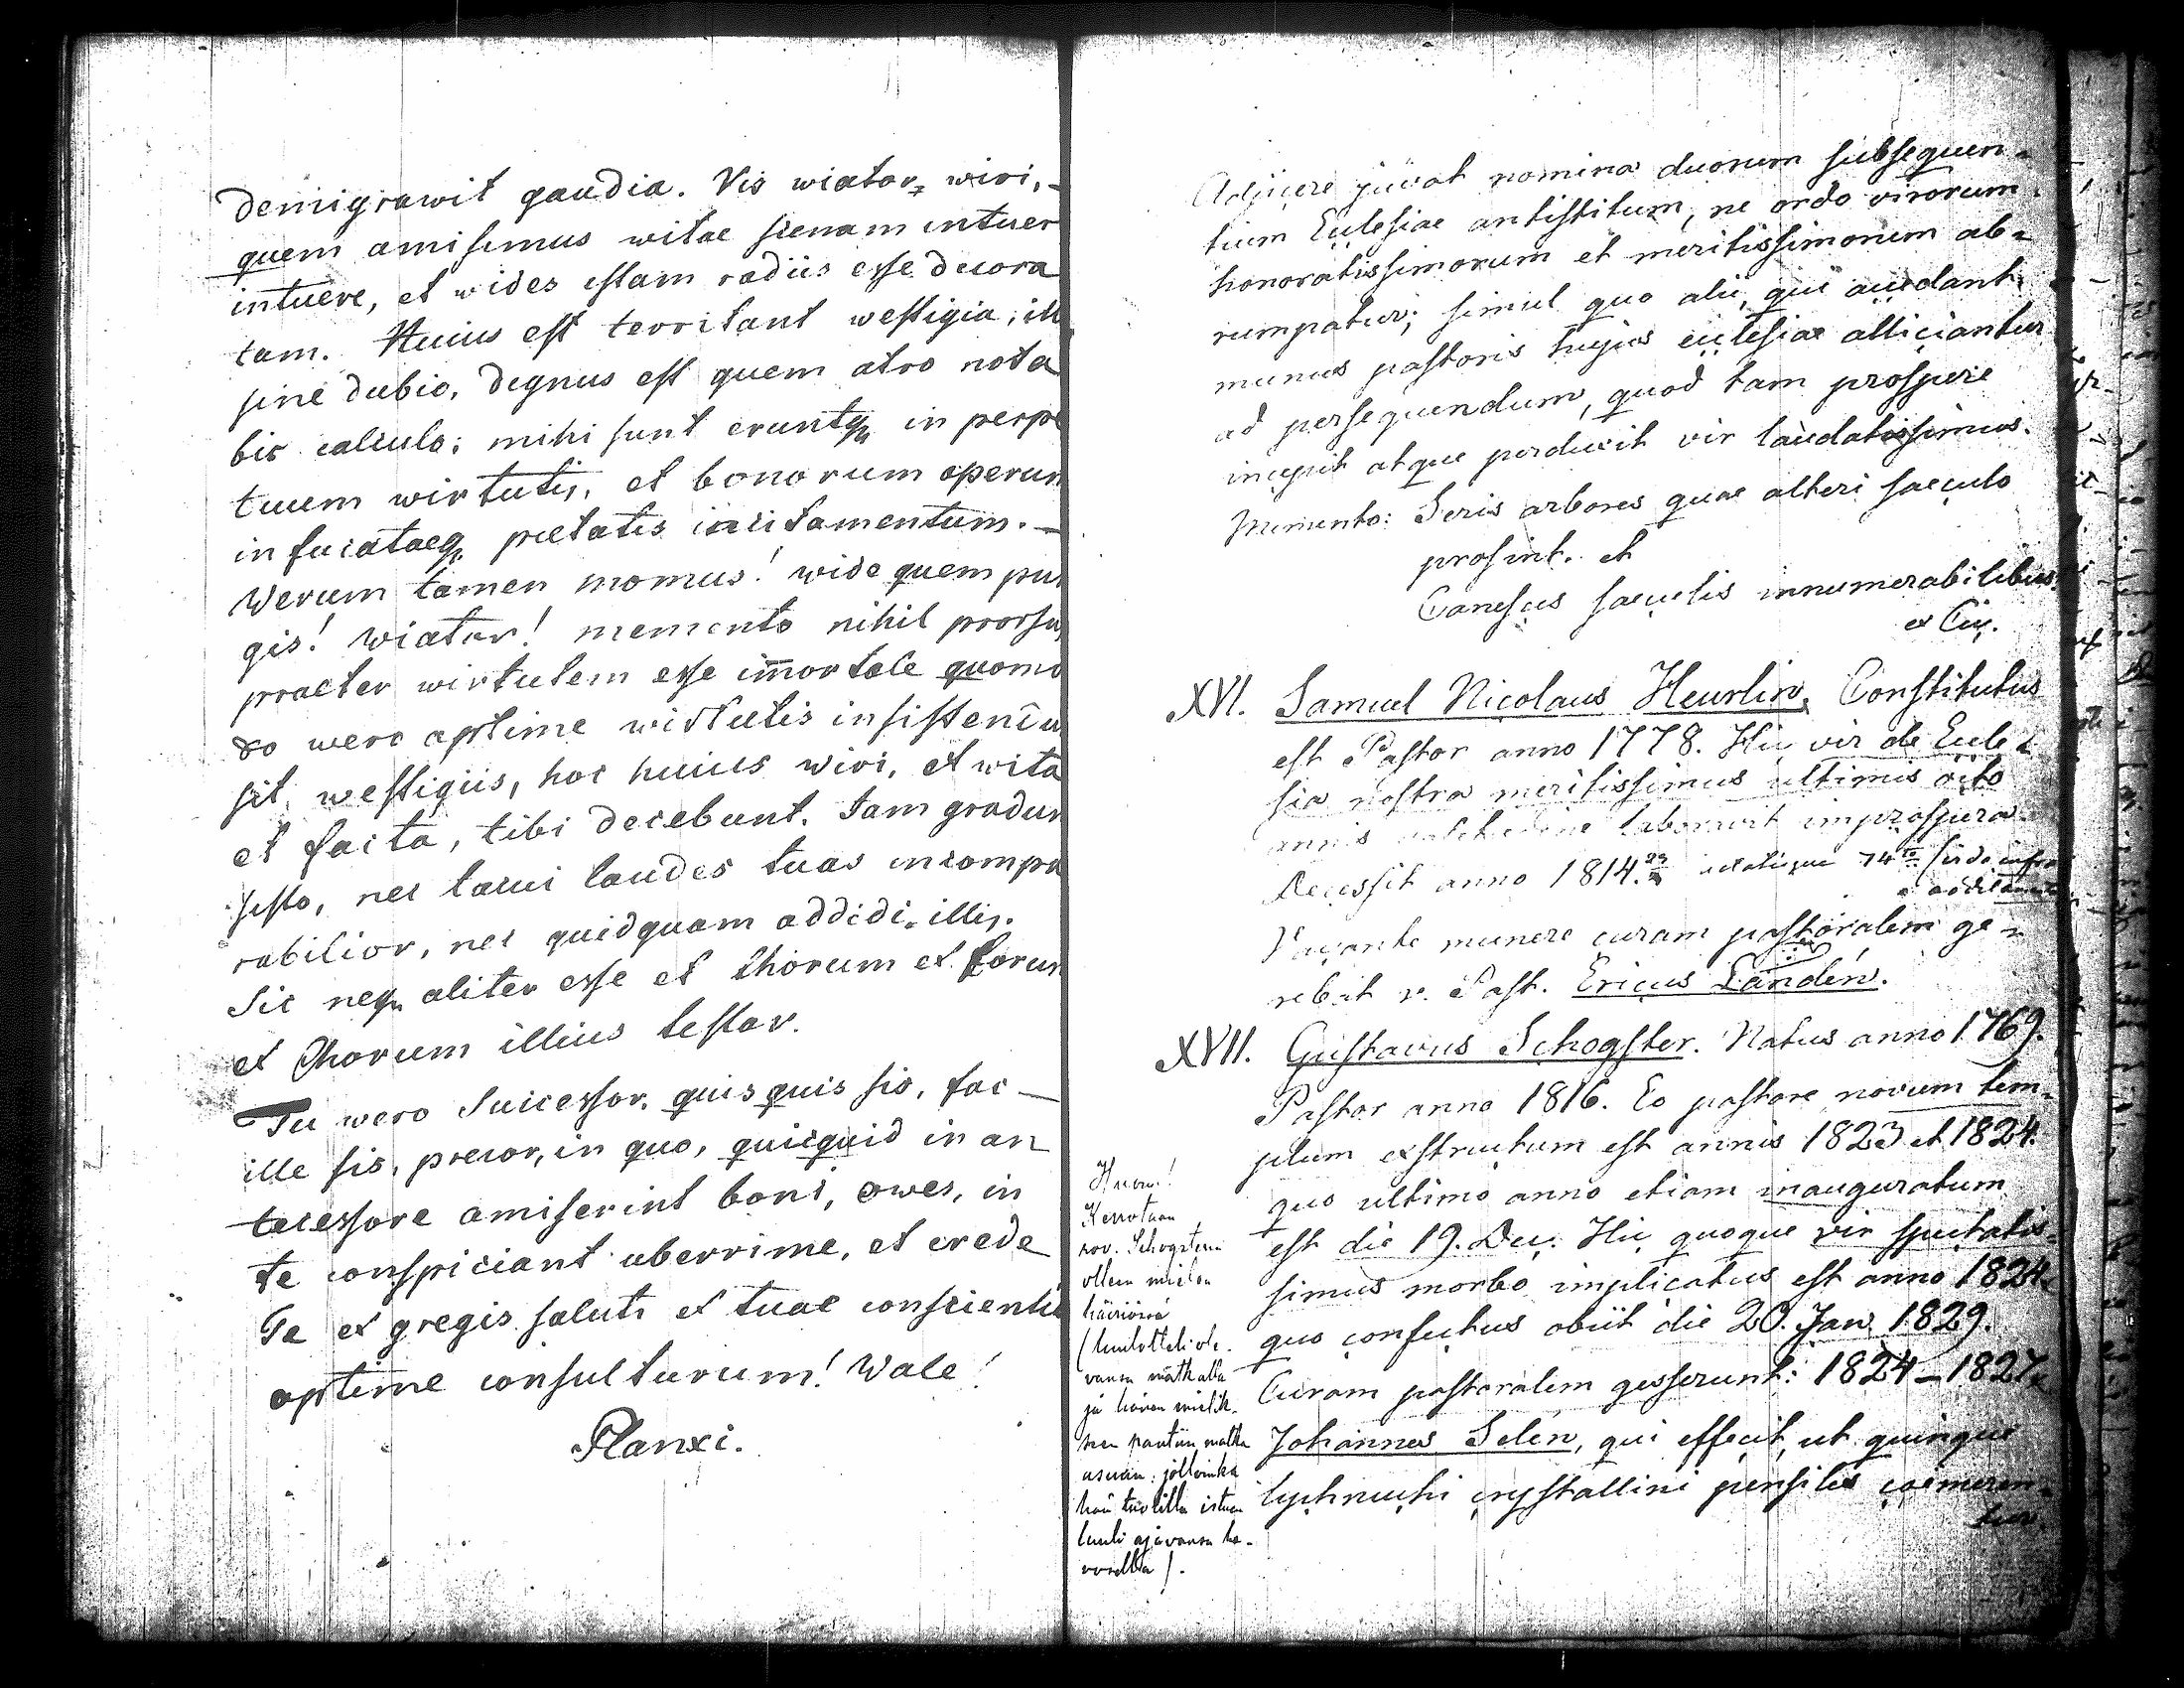 demigrawit gaudia. Vis wiator, wiri,-
quem amisimus witae scenam intuer
intuere, et wides estam radiis esse decora
tam. Huius est territant westigia, ill
sine dubio, dignus est quem atro nota
bis calculo; mihi sunt eruntq in perpe
tuum wirtutis, et bonorum operum
infucataeq pietatis incitamentum.-
Werum tamen momus! wide quem pun
gis! Wiator! memento nihil prorsus
praeter wirtutem esse imortale quomo
do wero optime wirtutis insistendu
sit, westigiis, hoc huius wiri, et wita
et facta, tibi docebunt. Iam gradum
sisto, nec tacui laudes tuas incompa
rabilior, nec quidquam addidi illis.
Sic neq aliter esse et thorum et forum
et Chorum illius testor.
Tu wero Successor, quisquis sis, fac-
ille sis, precor, in quo, quicquid in an
tecessore amiserint boni, owes, in
te conspiciant uberrime, et crede
Te et gregis saluti et tuae conscientiae
optime consulturum! Wale!
Planxi.
Adjicere juvat nomina duorum subsequen-
tium Ecclesiae antistitum, ne ordo virorum
honoratissimorum et meritissimorum ab-
rumpatur; simul quo alii, qui audant
munus pastoris hujus ecclesiae alliciantur
ad persequendum, quod tam prospere
incepit atque perduxit vir laudatissimus.
Memento: Seris arbores quae alteri saeculo
prosint. et
Canescus saeculis innumerabilibus.
ex Cic.
XVI. Samuel Nicolaus Heurlin, Constitutus
est Pastor anno 1778. Hic vir de Eccle-
sia nostra meritissimus ultimis octo
annis valetudine laboravit improspera.
Decessit anno 1814. aetatisque 74to
Vacante munere curam pastoralem ge-
rebat v. Past. Ericus Landén.
XVII. Gustavus Schogster. Natus anno 1769.
Pastor anno 1816. Eo pastore novum tem-
plum exstructum est annis 1823 et 1824.
quo ultimo anno etiam inauguratum
est die 19. Dec. Hic quoque vir spectatis-
simus morbo implicatus est anno 1824
quo confectus obiit die 20. Jan 1829.
Curam pastoralem gesserunt: 1824-1827
Johannes Selén, qui effecit, ut quinque
lychnuchi crystallini pensiles coemeren-
tur.
Huom!
Kerrotaan
rov. Schogsterin
olleen mielen
häiriössä
(luulotteli ole-
vansa matkalla
ja hänen mielik-
pantiin matka
asuun, jolloinka
hän tuolilla istuen
luuli ajavansa he-
vosella).